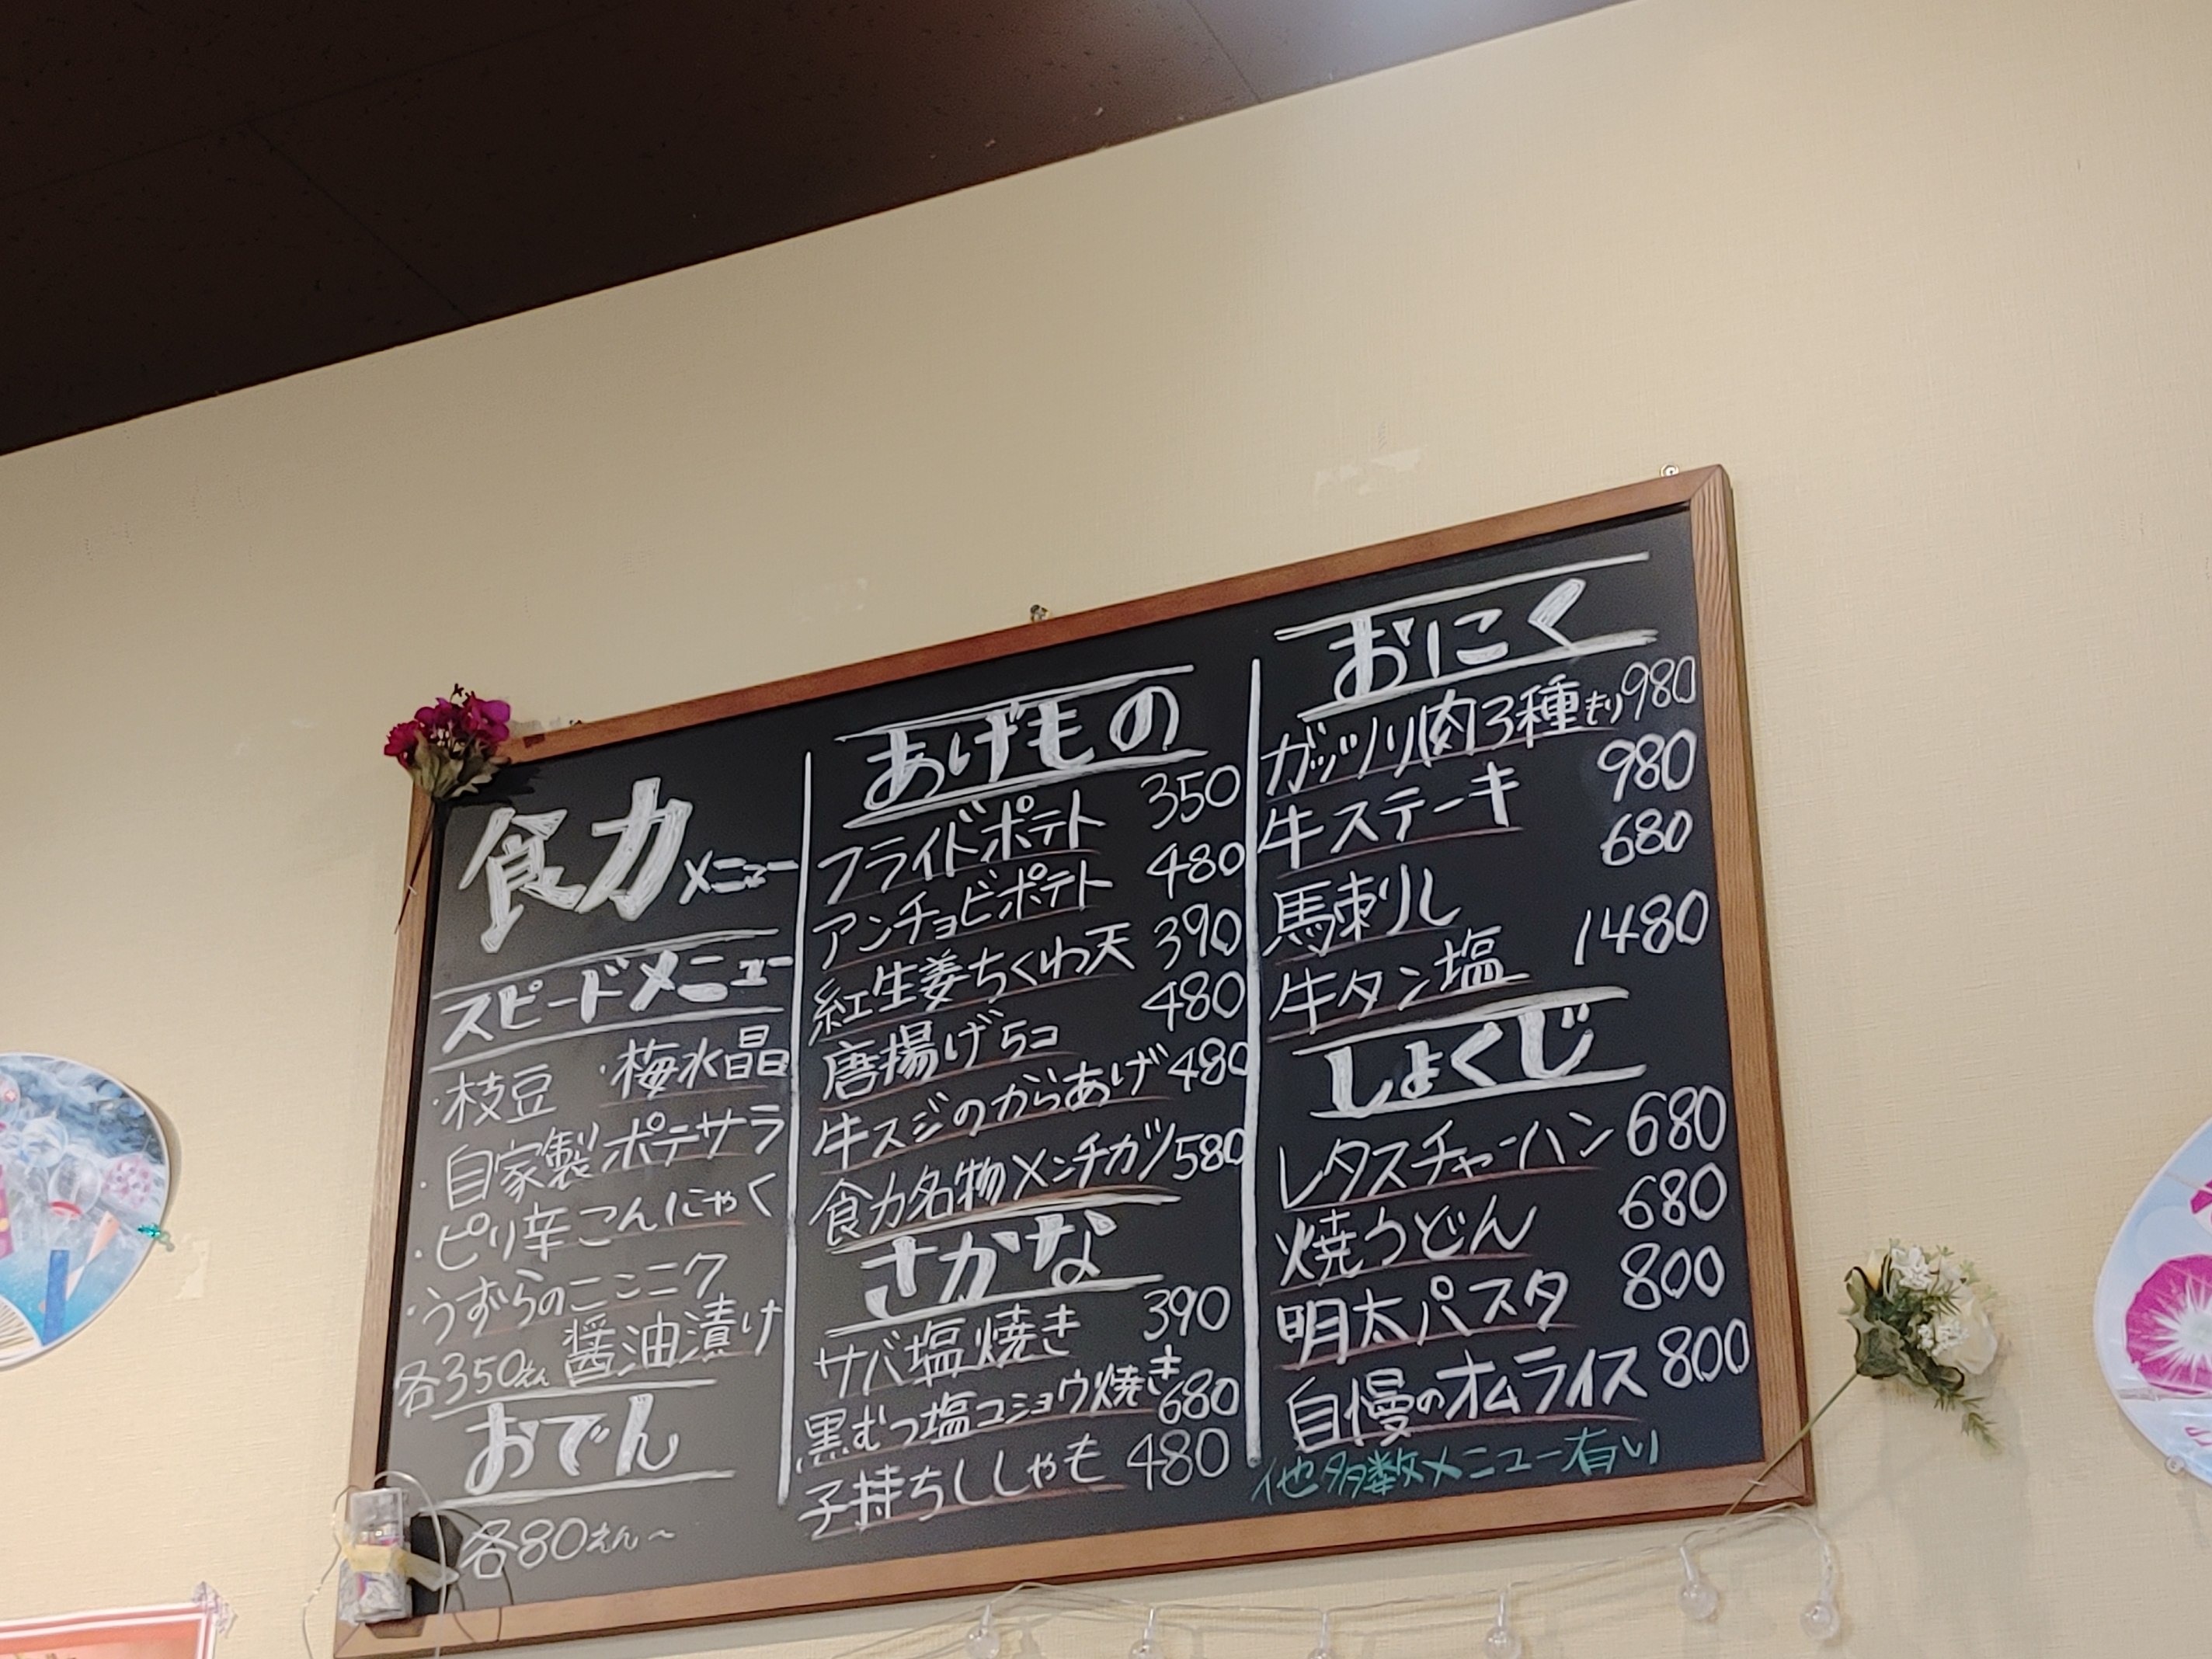 食力メニュー
スピードメニュー
・枝豆 ・梅水晶
・自家製ポテサラ
・ピリ辛こんにゃく
・うずらのニンニク
醤油漬け
各350えん
おでん
各80えん～
あげもの
フライドポテト 350
アンチョビポテト 480
紅生姜ちくわ天 390
唐揚げ5コ 480
牛スジのからあげ 480
食力名物メンチカツ 580
さかな
サバ塩焼き 390
黒むつ塩コショウ焼き 680
子持ちししゃも 480
おにく
ガッツリ肉3種もり 980
牛ステーキ 980
馬刺し 680
牛タン塩 1480
しょくじ
レタスチャーハン 680
焼うどん 680
明太パスタ 800
自慢のオムライス 800
他多数メニュー有い